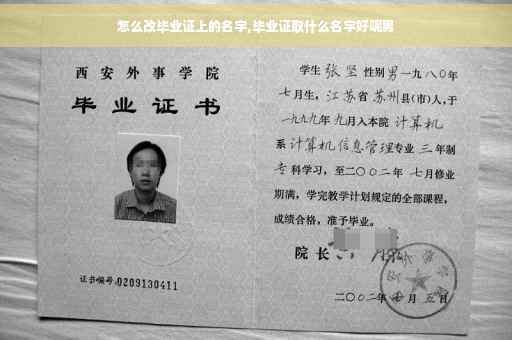 怎么改毕业证上的名字,毕业证取什么名字好呢男
西安外事学院
毕业证书
证书编号:0209130411
学生张坚性别男一九八〇年
七月生,江苏省苏州县(市)人,于
一九九九年九月入本院计算机
系计算机信息管理专业三年制
专科学习,至二〇〇二年七月修业
期满,学完教学计划规定的全部课程,
成绩合格,准予毕业。
院长
二〇〇二年 月五日